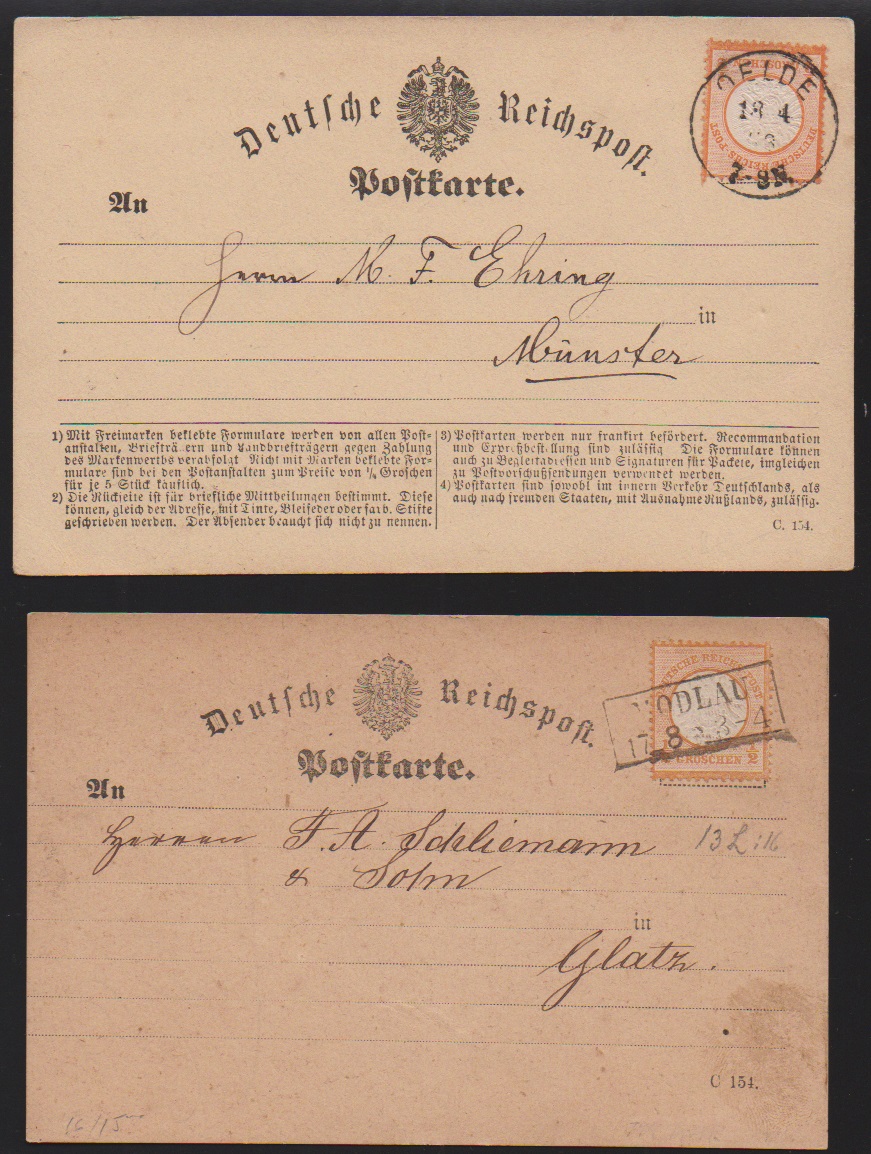 Deutsche Reichspost.
Postkarte.
OELDE
18 4
7-8N.
DEUTSCHE REICHS-POST
An
Herrn M. F. Ehring
in
Münster
1) Mit Freimarken beklebte Formulare werden von allen Post-
anstalten, Briefträgern und Landbriefträgern gegen Zahlung
des Markenwerths verabfolgt. Nicht mit Marken beklebte For-
mulare sind bei den Postanstalten zum Preise von ¼ Groschen
für je 5 Stück käuflich.
2) Die Rückseite ist für briefliche Mittheilungen bestimmt. Diese
können, gleich der Adresse, mit Tinte, Bleifeder oder farb. Stifte
geschrieben werden. Der Absender braucht sich nicht zu nennen.
3) Postkarten werden nur frankirt befördert. Recommandation
und Expreßbestellung sind zulässig. Die Formulare können
auch zu Begleitadressen und Signaturen für Packete, imgleichen
zu Postvorschußsendungen verwendet werden.
4) Postkarten sind sowohl im innern Verkehr Deutschlands, als
auch nach fremden Staaten, mit Ausnahme Rußlands, zulässig.
C. 154.
Deutsche Reichspost.
Postkarte.
DEUTSCHE REICHS-POST
½ GROSCHEN ½
17 8
An
Herren F. A. Schliemann
& Sohn
in
Glatz.
C 154.
16/15